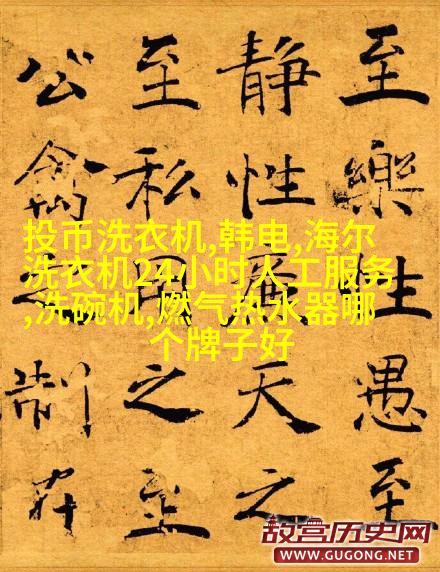 至樂性愚至
静性廉天之
至私用之至
公禽之制在
投币洗衣机,韩电,海尔
洗衣机24小时人工服务
,洗碗机,燃气热水器哪
个牌子好
故宫历史网
WWW.GUGONG.NET